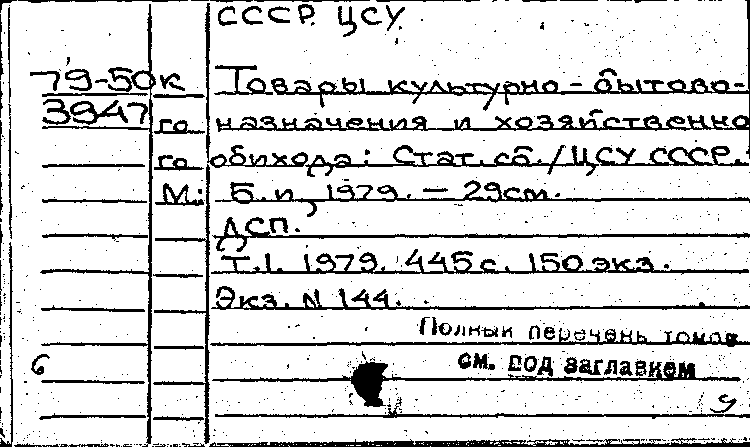 СССР. ЦСУ.
79-50к Товары культурно-бытово-
3947 го назначения и хозяйственно
го обихода: Стат. сб./ЦСУ СССР.
М.: Б.и, 1979. - 29см.
ДСП.
Т.1. 1979. 445с. 150 экз.
Экз. N 144.
Полный перечень томов
см. под заглавием
6
9